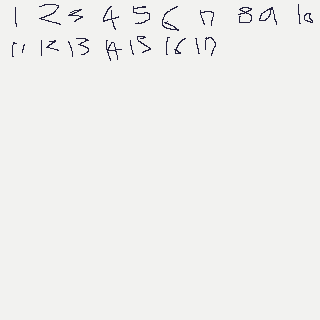 1 2 3 4 5 6 7 8 9 10
11 12 13 14 15 16 17